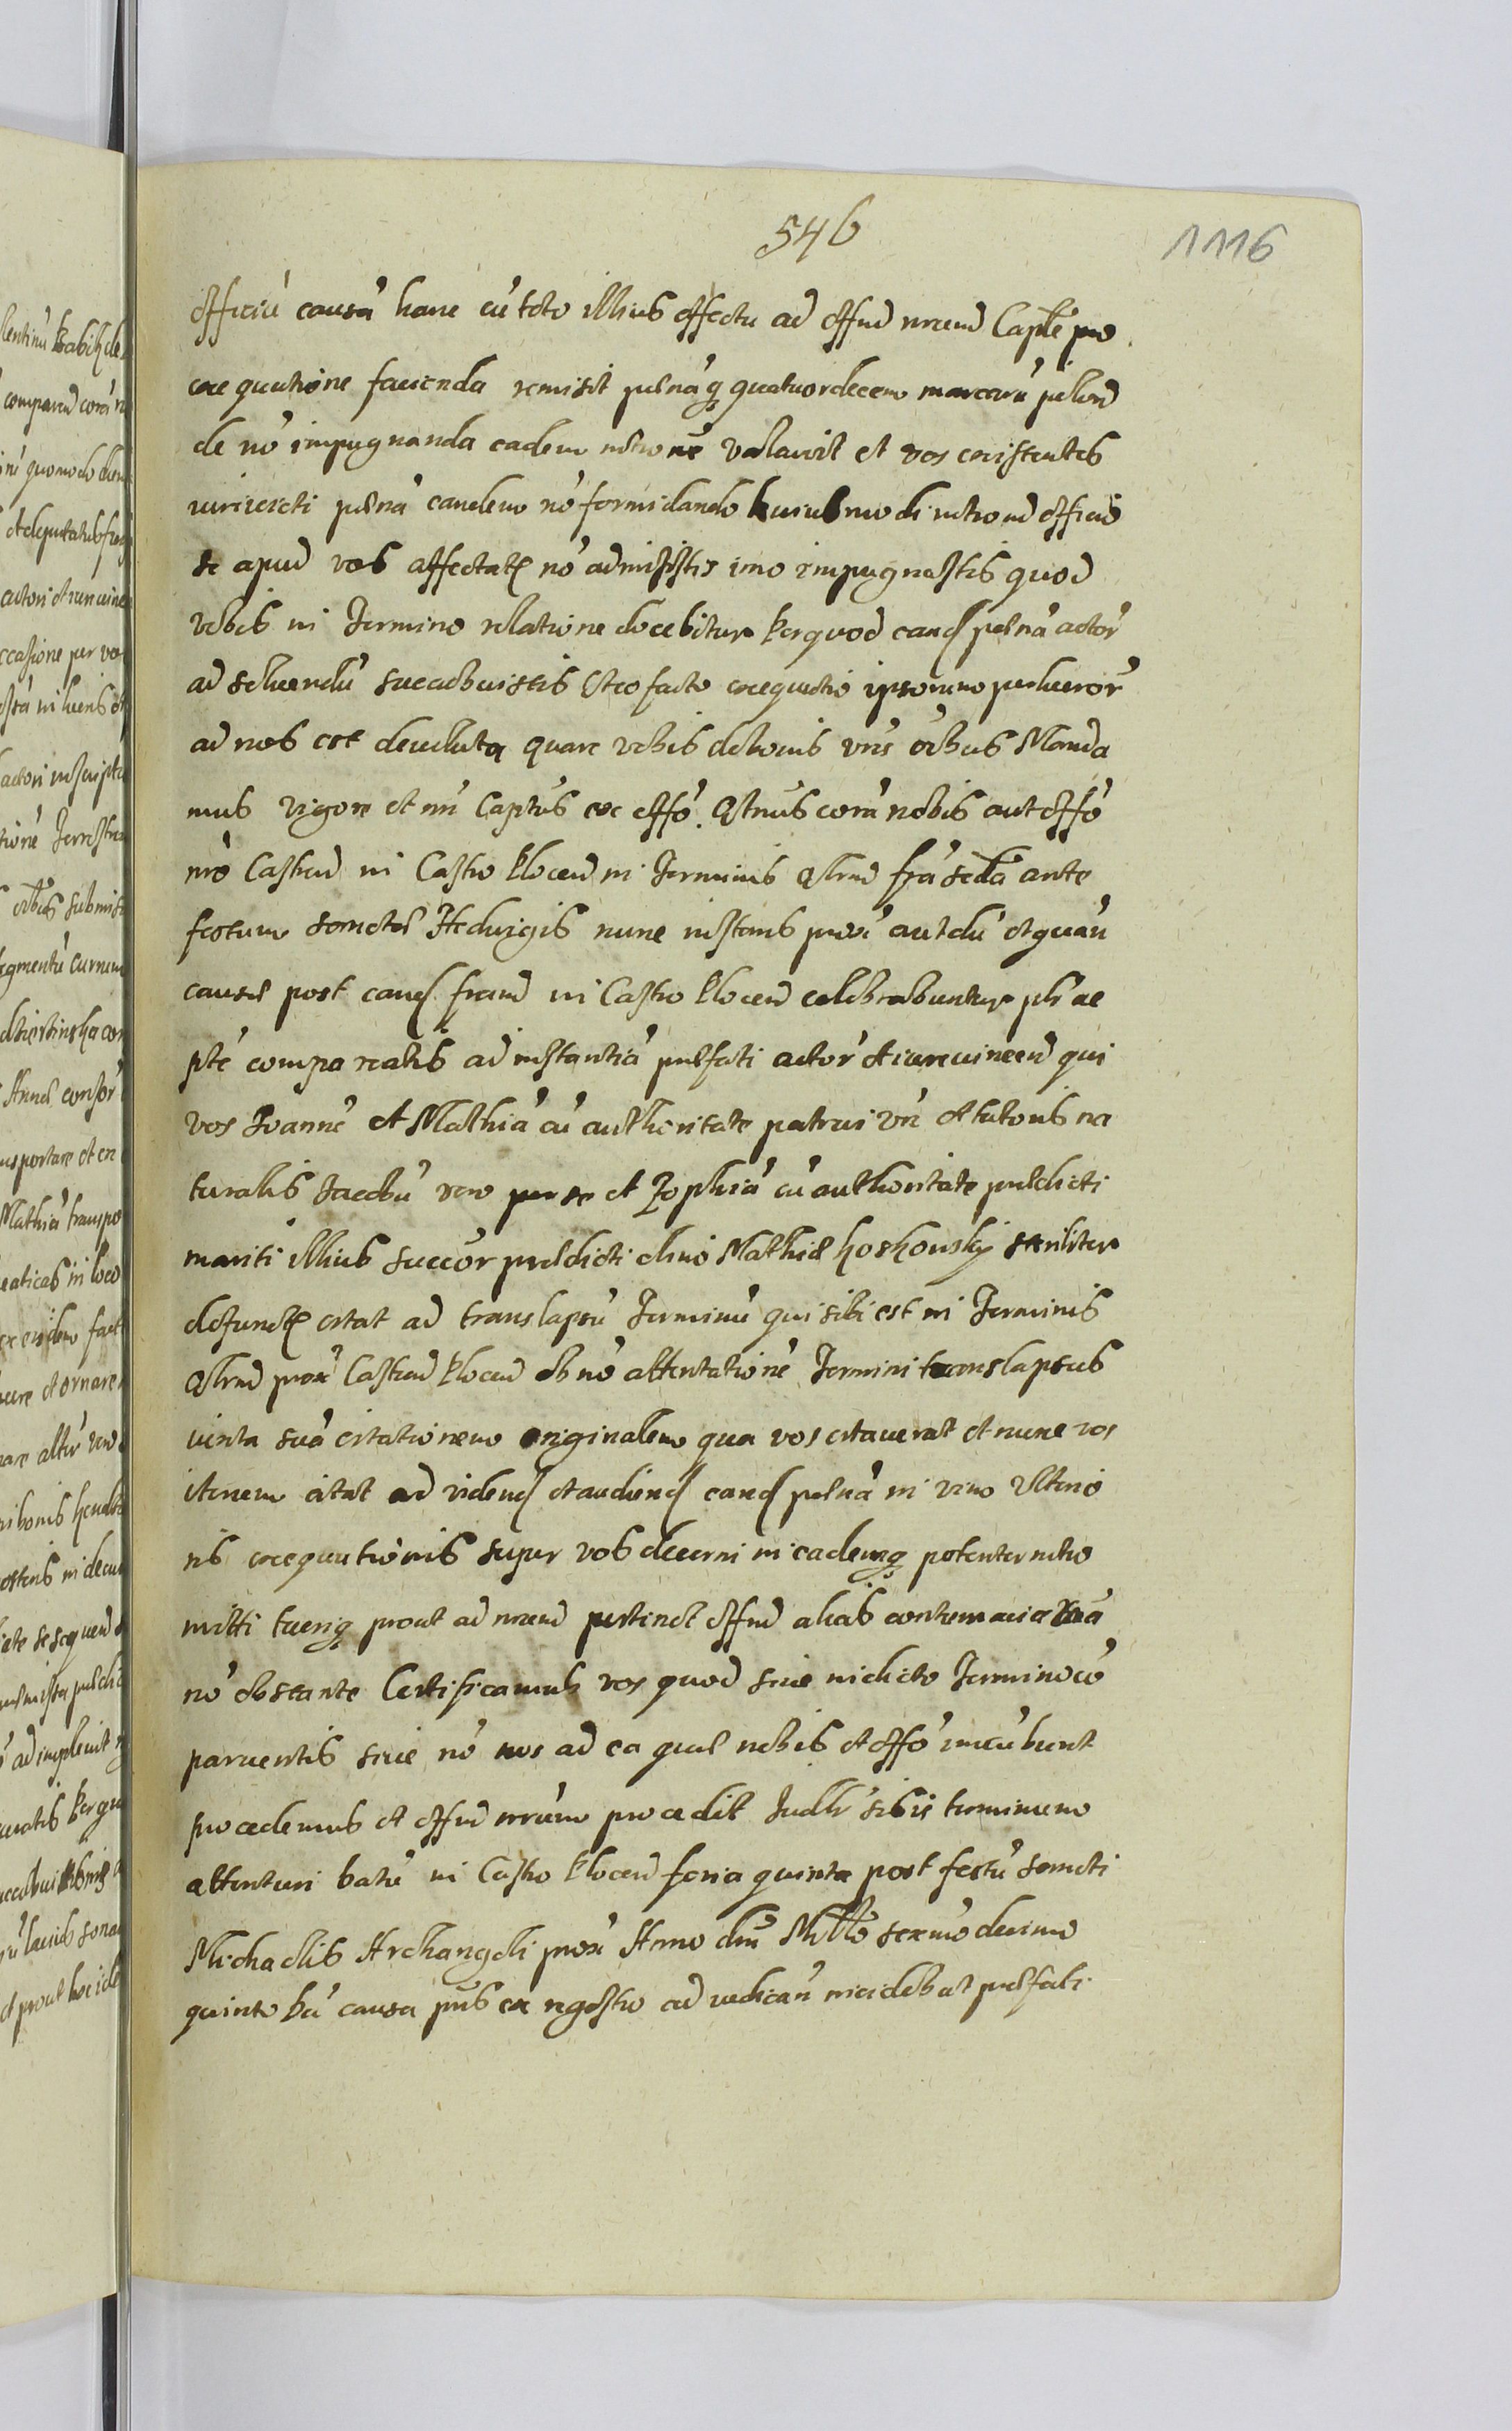 546
1116
officiũ causã hanc cũ toto illius effectu ad offnd nrend Captle pro
exequutione facienda remisit penãq quatuordecem marcarũ pclond
de nõ impugnanda eadem intromẽ vallavit et vos existentes
iurivicti penã eandem nõ formidando huiusmodi introm officio
se apud vos affectat nõ admisistis imo impugnastis quod
vobis in Termino relatione docebitur Per quod eand penã actor
ad soluendũ succubuistis Et eo facto exequutio ipsorum perlucror
ad nos est devoluta quare vobis de bonis vris oibus Manda
mus vigore et nri Captus ex offo. Qtnus corã nobis aut offo
nro Castren in Castro Plocen in Terminis Qlrnd fra scda ante
festum sanctæ Heduigis nunc instans prox aut dũ et quan
causæ post eand fram in Castro Plocen celebrabuntur plr ac
pte compareatis ad instantiã præfati actor et iurevincen qui
vos Joannẽ et Mathiã cũ authoritate patrui vri et tutoris na
turalis Jacobũ vero per se et Zophiã cũ authoritate prædicti
mariti illius succor prædicti olim Mathiæ Koskowsky steriliter
defunct citat ad translapsũ Terminũ qui sibi est in Terminis
Qlrnd prox Castren Plocen ob nõ attentationẽ Termini translapsus
iuxta suã citationem originalem qua vos citaverat et nunc vos
iterum citat ad videnđ et audienđ eand penã in vim Ulterio
ris exequutionis super vos decerni in eademq potenter intro
mitti tueriq prout ad nrend pertinet offnd alias contumacia vra
nõ obstante Certificamus vos quod siue in dicto Termino cõ
parueritis siue nõ nos ad ea quæ nobis et offo incũbunt
procedemus et offnd nrum procedit Judlr sibis terminum
attenturi Datũ in Castro Plocen feria quinta post festũ Sancti
Michaelis Archangeli prox Anno dni Millo sexmo decimo
quinto Hã causa pns ex regestro ad iudicañ incidebat præfati